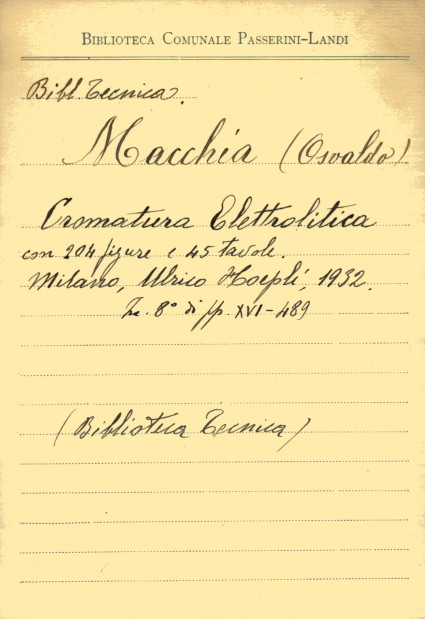 BIBLIOTECA COMUNALE PASSERINI-LANDI
Bibl. Tecnica.
Macchia (Osvaldo)
Cromatura Elettrolitica
con 204 figure e 45 tavole.
Milano, Ulrico Hoepli, 1932.
In. 8° di pp. XVI-489
(Biblioteca Tecnica)